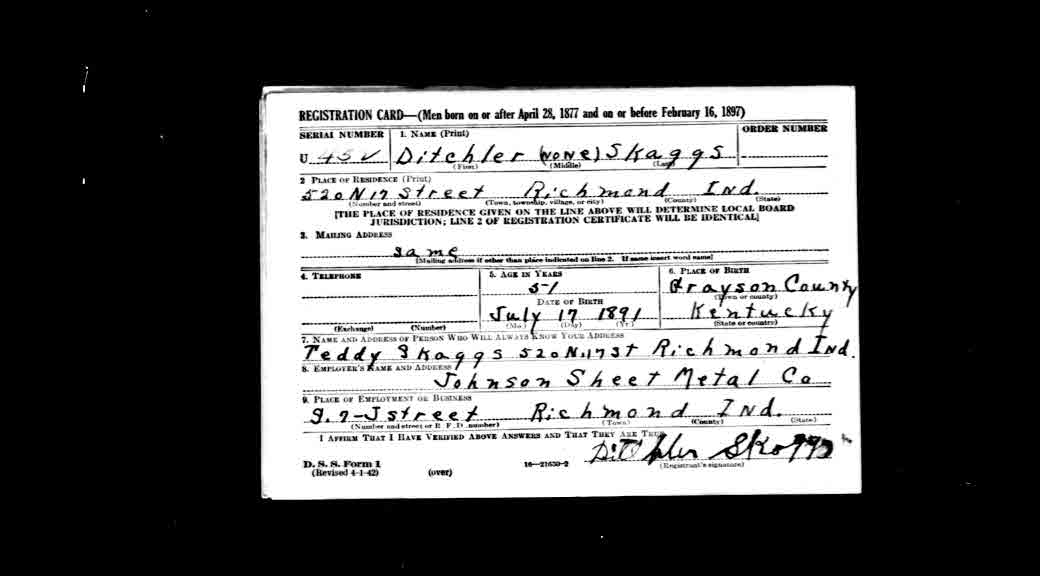 REGISTRATION CARD—(Men born on or after April 28, 1877 and on or before February 16, 1897)
SERIAL NUMBER 1. NAME (Print) ORDER NUMBER
U 45V Ditchler (NONE) Skaggs
(First) (Middle) (Last)
2 PLACE OF RESIDENCE (Print)
520 N 17 Street Richmond Ind.
(Number and street) (Town, township, village, or city) (County) (State)
[THE PLACE OF RESIDENCE GIVEN ON THE LINE ABOVE WILL DETERMINE LOCAL BOARD
JURISDICTION; LINE 2 OF REGISTRATION CERTIFICATE WILL BE IDENTICAL]
3. MAILING ADDRESS
same
[Mailing address if other than place indicated on line 2. If same insert word same]
4. TELEPHONE 5. AGE IN YEARS 6. PLACE OF BIRTH
51 Grayson County
(Town or county)
DATE OF BIRTH
July 17 1891 Kentucky
(Exchange) (Number) (Mo.) (Day) (Yr.) (State or country)
7. NAME AND ADDRESS OF PERSON WHO WILL ALWAYS KNOW YOUR ADDRESS
Teddy Skaggs 520 N. 17 St Richmond Ind.
8. EMPLOYER'S NAME AND ADDRESS
Johnson Sheet Metal Co
9. PLACE OF EMPLOYMENT OR BUSINESS
J street Richmond Ind.
(Number and street or R. F. D. number) (Town) (County) (State)
I AFFIRM THAT I HAVE VERIFIED ABOVE ANSWERS AND THAT THEY ARE TRUE.
Ditchler Skaggs
D. S. S. Form 1
(Revised 4-1-42) (over) 16—21630-2 (Registrant's signature)